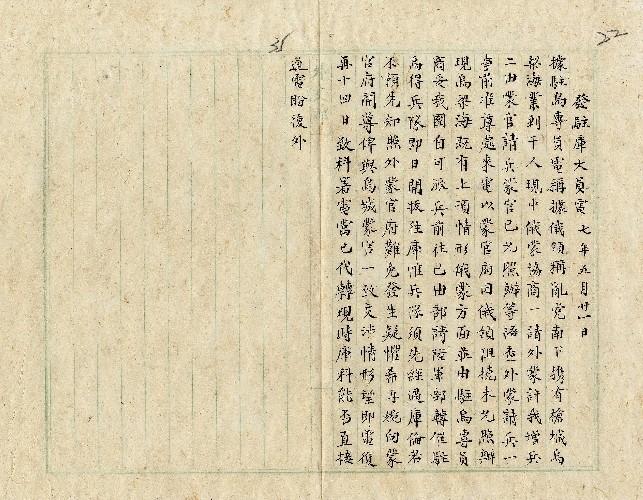 22
35
發駐庫大員電 七年五月廿一日
據駐烏專員電稱據俄領稱亂党南下擬有槍城烏
梁海業到千人現中俄蒙協商一請外蒙許我增兵
二由蒙官請兵蒙官已允照辦等語查外蒙請兵一
事前准尊處來電以蒙官府因俄領阻撓未允照辦
現烏梁海既有上項情形俄蒙方面業由駐烏專員
商妥我國自可派兵前往已由部請陸軍部轉催駐
烏得兵隊即日開拔往庫惟兵隊須先經過庫倫若
不預先知照外蒙官府難免發生疑懼希再婉向蒙
官府開導俾與烏城蒙官一致交涉情形望即電復
再十四日致科署電當已代轉現時庫科能否直接
通電盼復外